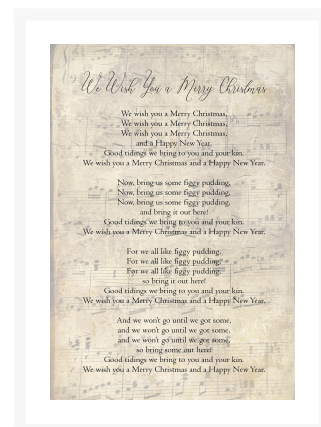 We Wish You a Merry Christmas
We wish you a Merry Christmas,
We wish you a Merry Christmas,
We wish you a Merry Christmas,
and a Happy New Year.
Good tidings we bring to you and your kin.
We wish you a Merry Christmas and a Happy New Year.
Now, bring us some figgy pudding,
Now, bring us some figgy pudding,
Now, bring us some figgy pudding,
and bring it out here!
Good tidings we bring to you and your kin.
We wish you a Merry Christmas and a Happy New Year.
For we all like figgy pudding.
For we all like figgy pudding,
For we all like figgy pudding,
so bring it out here!
Good tidings we bring to you and your kin.
We wish you a Merry Christmas and a Happy New Year.
And we won't go until we got some,
and we won't go until we got some,
and we won't go until we got some,
so bring some out here!
Good tidings we bring to you and your kin.
We wish you a Merry Christmas and a Happy New Year.